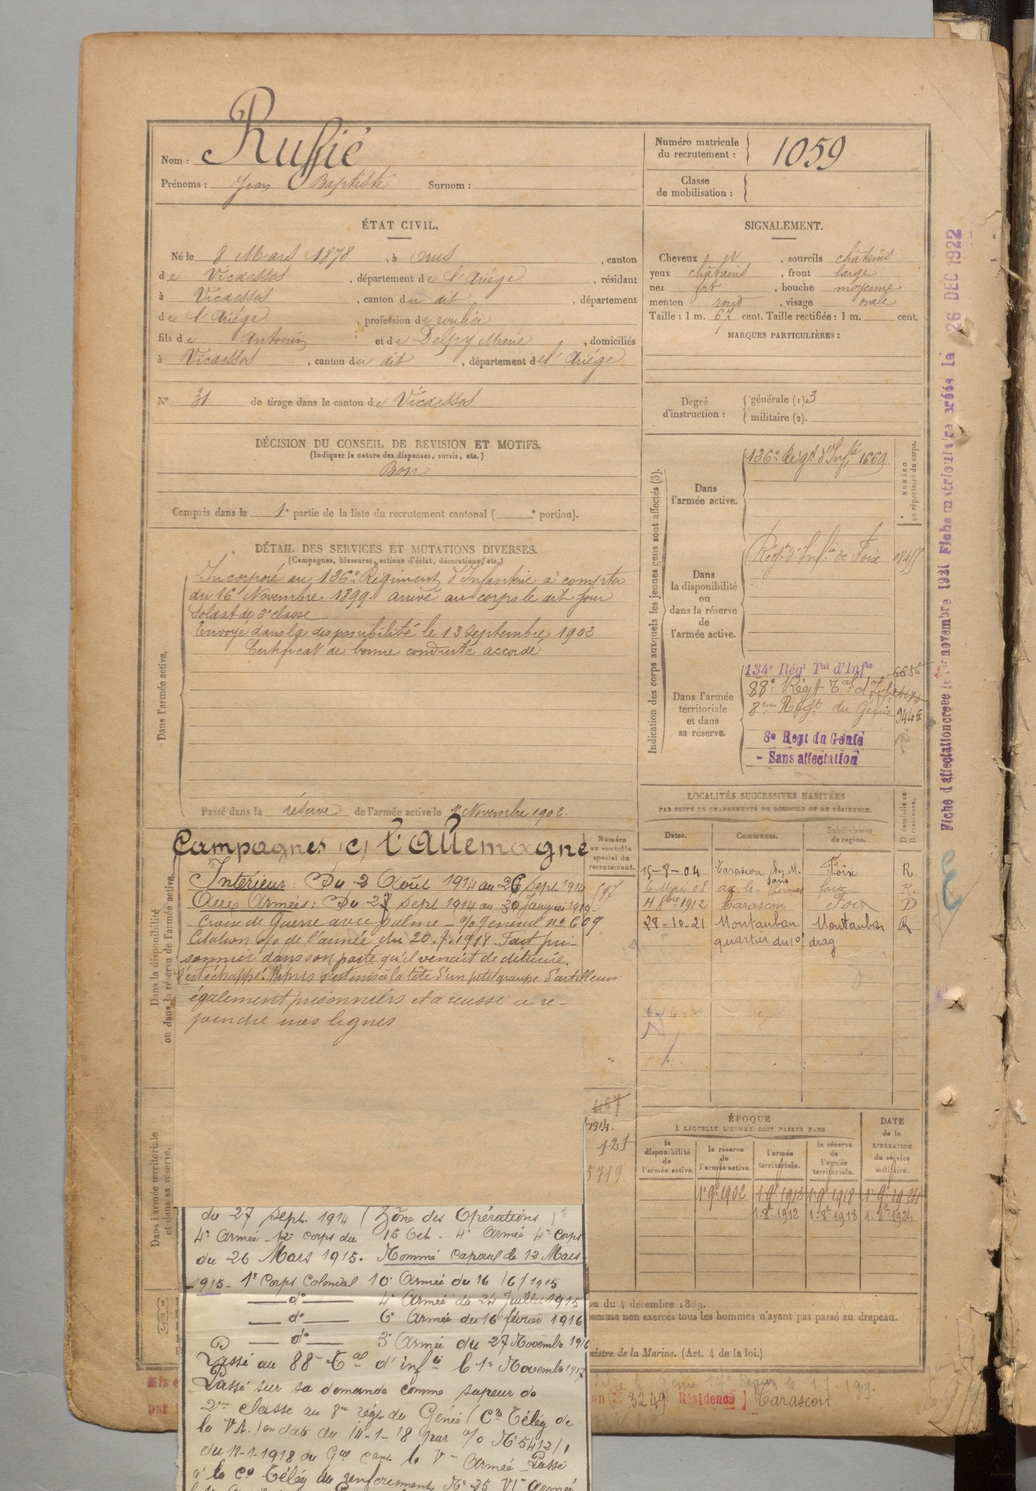 Nom : Ruffié
Prénoms : Jean Baptiste Surnom :
Numéro matricule du recrutement : 1059
Classe de mobilisation :
ÉTAT CIVIL.
Né le 8 Mars 1878, à Orus, canton
de Vicdessos, département de l'Ariége, résidant
à Vicdessos, canton du dit, département
de l'Ariége, profession de roulier
fils de Antonin et de Delpy Marie, domiciliés
à Vicdessos, canton du dit, département de l'Ariége
N° 31 de tirage dans le canton de Vicdessos
SIGNALEMENT.
Cheveux, sourcils châtains
yeux châtains, front large
nez fort, bouche moyenne
menton rond, visage ovale
Taille : 1 m. 67 cent. Taille rectifiée : 1 m. cent.
MARQUES PARTICULIÈRES :
Degré d'instruction : générale (1) 3
militaire (2).
DÉCISION DU CONSEIL DE REVISION ET MOTIFS.
(Indiquer la nature des dispenses, sursis, etc.)
Bon
Compris dans la 1e partie de la liste du recrutement cantonal ( e portion).
DÉTAIL DES SERVICES ET MUTATIONS DIVERSES.
(Campagnes, blessures, actions d'éclat, décorations, etc.)
Incorporé au 136e Régiment d'Infanterie à compter
du 16 Novembre 1899. arrivé au corps le dit jour
soldat de 2e classe
Envoyé dans la disponibilité le 13 Septembre 1902
Certificat de bonne conduite accordé
Dans l'armée active.
Passé dans la réserve de l'armée active le 1er Novembre 1902.
Indication des corps auxquels les jeunes gens sont affectés (3).
NUMÉRO au répertoire du corps.
Dans l'armée active.
136e Régt d'Infie 1669
Dans la disponibilité ou dans la réserve de l'armée active.
Régt d'Infie de Foix
Dans l'armée territoriale et dans sa réserve.
134e Régt Tal d'Infie
88e Régt Tal d'Infie
8eme Régt du Génie
8e Regt du Génie
- Sans affectation
Fiche d'affectation créée le 1er novembre 1921 Fiche matriculaire créée le 26 DEC 1922
LOCALITÉS SUCCESSIVES HABITÉES
PAR SUITE DE CHANGEMENTS DE DOMICILE OU DE RÉSIDENCE.
Dates. Communes. Subdivision de région. D. domicile ou R. résidence.
15-8-04 Tarascon Foix R
Mai 08 ax-les-Thermes Foix R.
1912 Tarascon Foix D
28-10-21 Montauban Montauban R
quartier du 10e drag
Numéro au contrôle spécial du recrutement.
Campagnes (c) l'Allemagne
Intérieur : Du 2 Août 1914 au 26 Sept 1914
Aux Armées : Du 27 Sept 1914 au 30 Janvier 1919
Croix de Guerre avec palme - o/o Général n° 609
Citation o/o de l'armée du 20.7.1918. Fait pri-
sonnier dans son poste qu'il venait de détruire.
S'est échappé. Repris s'est mis à la tête d'un petit groupe d'artilleurs
également prisonniers et a réussi à re-
joindre nos lignes
Dans la disponibilité ou dans la réserve de l'armée active.
Dans l'armée territoriale et dans sa réserve.
487
1914.
121
5719
ÉPOQUE
À LAQUELLE L'HOMME DOIT PASSER DANS
DATE de la LIBÉRATION du service militaire.
la disponibilité de l'armée active. la réserve de l'armée active. l'armée territoriale. la réserve de l'armée territoriale.
du 27 Sept. 1914 (Zône des Opérations)
4e Armée - 12e corps du 15 Oct. - 4e Armée 4e Corps
du 26 Mars 1915. Nommé caporal le 12 Mars
1915 - 1er Corps Colonial 10e Armée du 16/6/1915
— do — 4e Armée du 24 Juillet 1915
— do — 6e Armée du 16 février 1916
— do — 3e Armée du 27 Novembre 1916
Passé au 88e Tal d'infie le 1er Novembre 1917
Passé sur sa demande comme sapeur de
2me classe au 8me régt du Génie (Cie Télég de
la V A.) en date du 14-1-18 par o/o N° 5412/1
du 11-1-1918 du Gal Cant la Ve Armée. Passé
à la Cie Télég du renforcement N° 25 VIe Armée
du 4 décembre 1889.
comme non exercés tous les hommes n'ayant pas passé au drapeau.
ministre de la Marine. (Art. 4 de la loi.)
3249 Résidence ] Tarascon